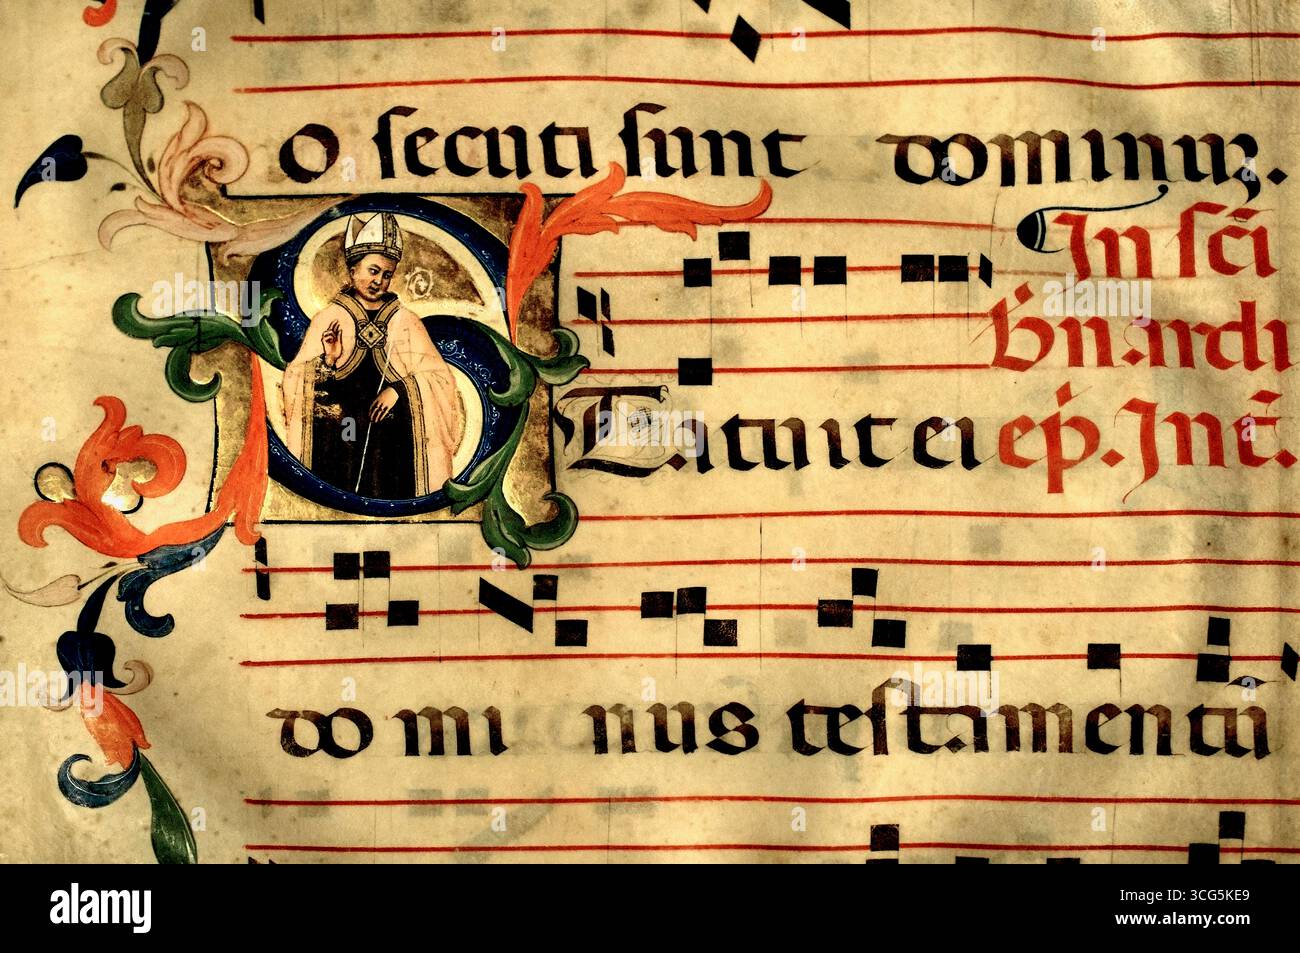 o secuti sunt dominuʒ.
In sc̄i
b̄nardi
Statuit ei ep̄i. Int̄.
do mi nus testamentū
a alamy
alamy
Image ID: 3CG5KE9
www.alamy.com